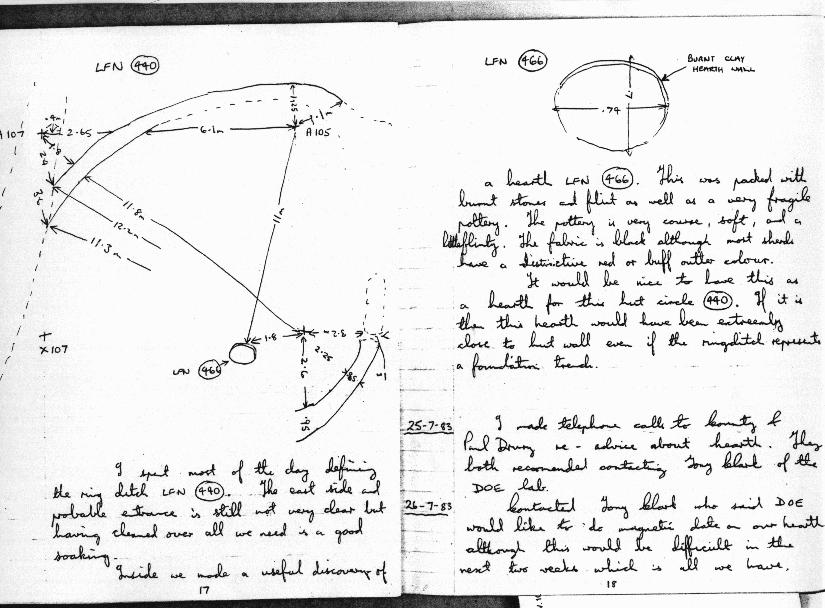 LFN 440
.4m
A 107
2.65
.8
2.9
6.1m
1.25
1.1m
A105
11.8m
12.2m
11.3m
11m
X107
1.8
2.8
2.6
2.25
.85
.95
LFN 466
I spent most of the day defining
the ring ditch LFN 440. The east side and
probable entrance is still not very clear but
having cleaned over all we need is a good
soaking.
Inside we made a useful discovery of
17
LFN 466
BURNT CLAY
HEARTH WALL
.7
.74
a hearth LFN 466. This was packed with
burnt stones ad flint as well as a very fragile
pottery. The pottery is very course, soft, and a
flinty. The fabric is black although most sherds
have a distinctive red or buff outter colour.
It would be nice to have this as
a hearth for this hut circle 440. If it is
then this hearth would have been extreemly
close to hut wall even if the ringditch represents
a foundation trench.
25-7-83
I made telephone calls to County &
Paul Drury re - advice about hearth. They
both recomended contacting Tony Clark of the
DOE lab.
26-7-83
Contacted Tony Clark who said DOE
would like to do magnetic date on our hearth
although this would be difficult in the
next two weeks which is all we have.
18